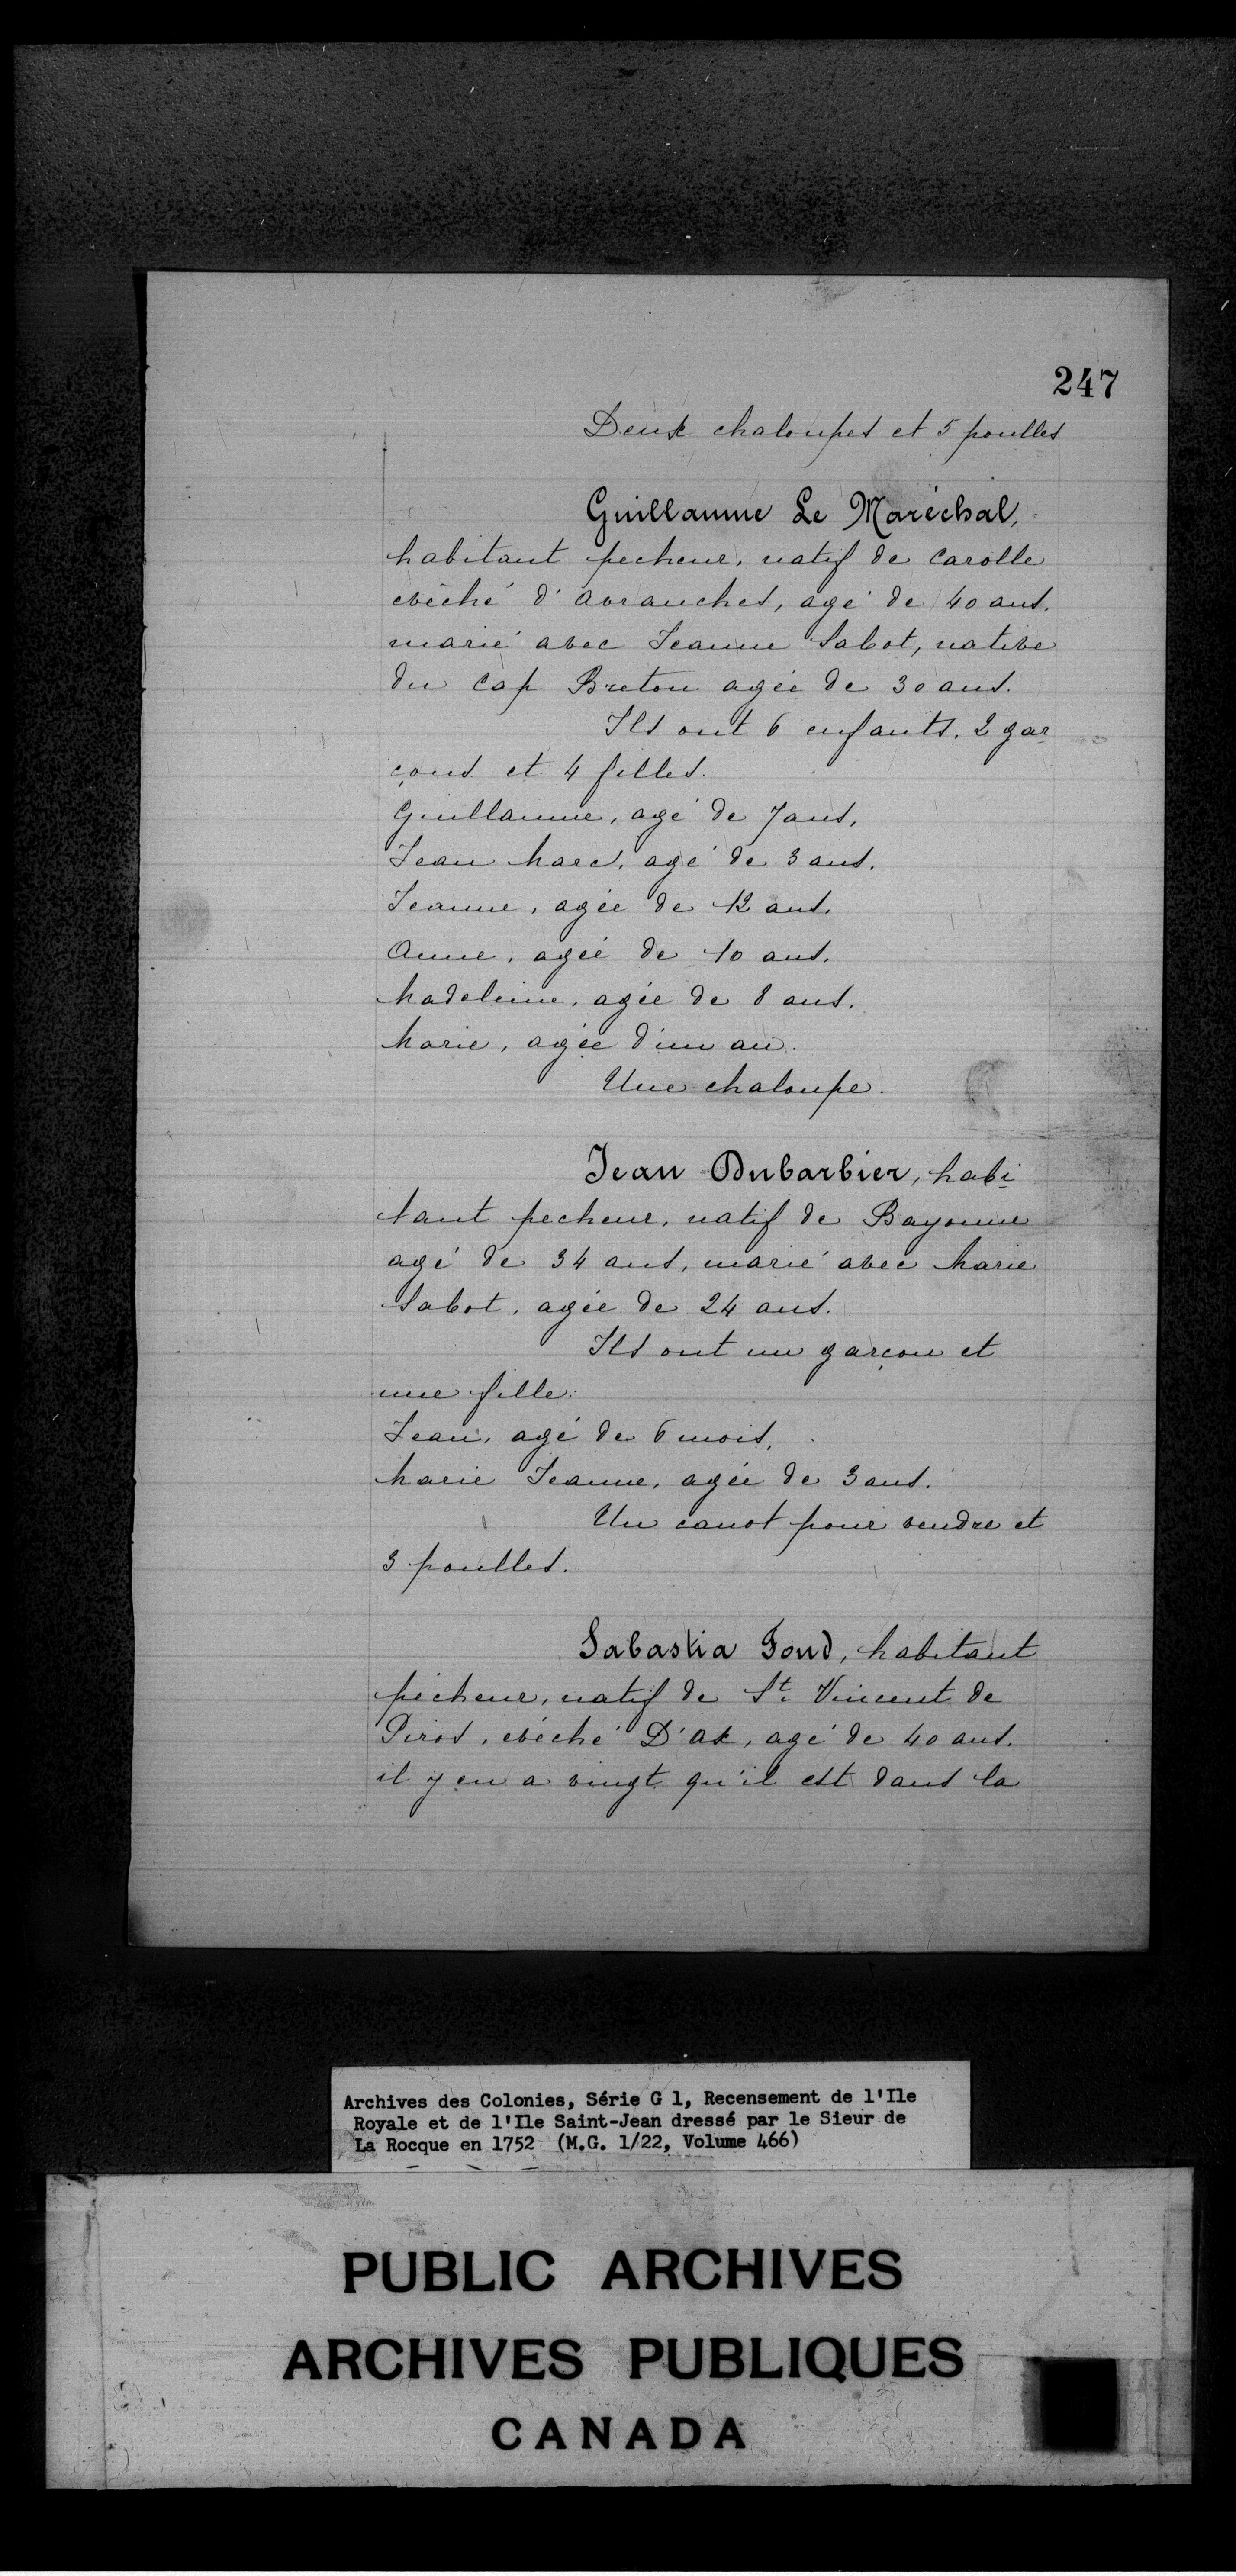 247
Deux chaloupes et 5 poulles
Guillaume Le Maréchal,
habitant pecheur, natif de Carolle
evêché d'avranches, agé de 40 ans.
marié avec Jeanne Sabot, native
du Cap Breton agée de 30 ans.
Ils ont 6 enfants, 2 gar
çons et 4 filles.
Guillaume, agé de 7 ans,
Jean Marc, agé de 3 ans.
Jeanne, agée de 12 ans.
Anne, agée de 10 ans.
Madeleine, agée de 8 ans.
Marie, agée d'un an.
Une chaloupe.
Jean Dubarbier, habi
tant pecheur, natif de Bayonne
agé de 34 ans, marié avec Marie
Sabot, agée de 24 ans.
Ils ont un garçon et
une fille:
Jean, agé de 6 mois,
Marie Jeanne, agée de 3 ans.
Un canot pour vendre et
3 poulles.
Sabastia Fond, habitant
pêcheur, natif de St. Vincent de
Piros, evêché D'ax, agé de 40 ans.
il y en a vingt qu'il est dans la
Archives des Colonies, Série G 1, Recensement de l'Ile
Royale et de l'Ile Saint-Jean dressé par le Sieur de
La Rocque en 1752 (M.G. 1/22, Volume 466)
PUBLIC ARCHIVES
ARCHIVES PUBLIQUES
CANADA